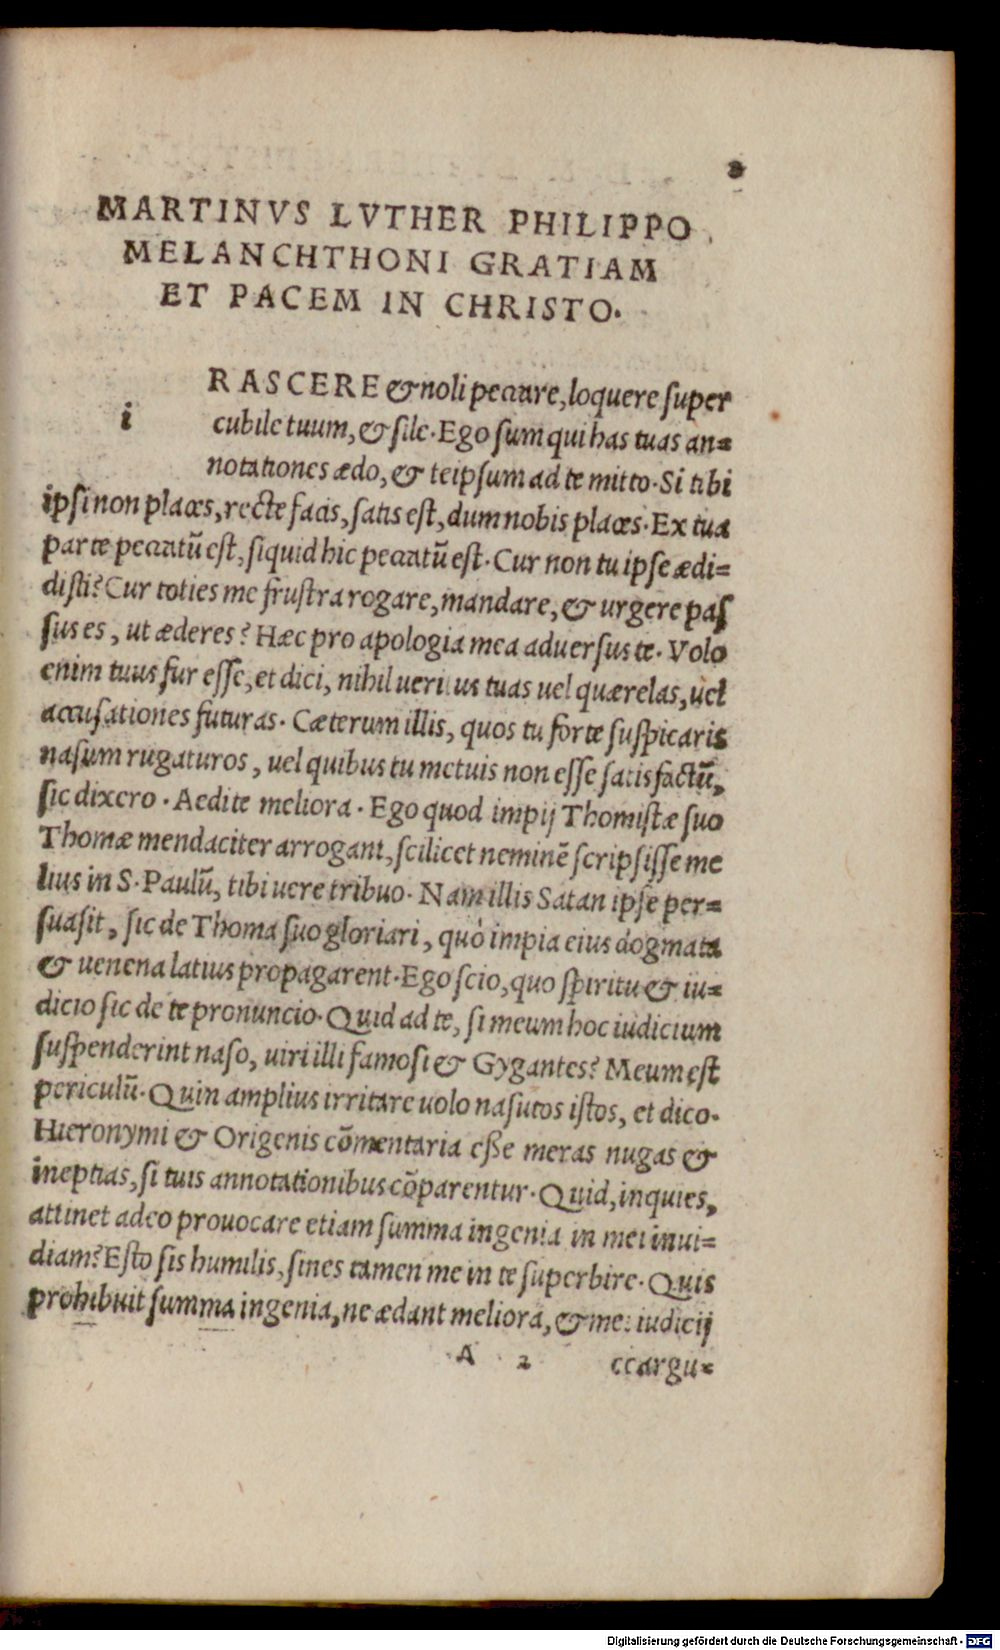 2
MARTINVS LVTHER PHILIPPO
MELANCHTHONI GRATIAM
ET PACEM IN CHRISTO.
i RASCERE & noli peccare, loquere super
cubile tuum, & sile. Ego sum qui has tuas an=
notationes ædo, & teipsum ad te mitto. Si tibi
ipsi non places, recte facis, satis est, dum nobis places. Ex tua
parte peccatū est, siquid hic peccatū est. Cur non tu ipse ædi=
disti? Cur toties me frustra rogare, mandare, & urgere pas
sus es, ut æderes? Hæc pro apologia mea aduersus te. Volo
enim tuus fur esse, et dici, nihil ueritus tuas uel quærelas, uel
accusationes futuras. Cæterum illis, quos tu forte suspicaris
nasum rugaturos, uel quibus tu metuis non esse satisfactū,
sic dixero. Aedite meliora. Ego quod impij Thomistæ suo
Thomæ mendaciter arrogant, scilicet neminē scripsisse me
lius in S. Paulū, tibi uere tribuo. Nam illis Satan ipse per=
suasit, sic de Thoma suo gloriari, quò impia eius dogmata
& uenena latius propagarent. Ego scio, quo spiritu & iu=
dicio sic de te pronuncio. Quid ad te, si meum hoc iudicium
suspenderint naso, uiri illi famosi & Gygantes? Meum est
periculū. Quin amplius irritare uolo nasutos istos, et dico.
Hieronymi & Origenis cōmentaria esse meras nugas &
ineptias, si tuis annotationibus cōparentur. Quid, inquies,
attinet adeo prouocare etiam summa ingenia in mei inui=
diam? Esto sis humilis, sines tamen me in te superbire. Quis
prohibuit summa ingenia, ne ædant meliora, & mei iudicij
A 2 ccargu=
Digitalisierung gefördert durch die Deutsche Forschungsgemeinschaft - DFG